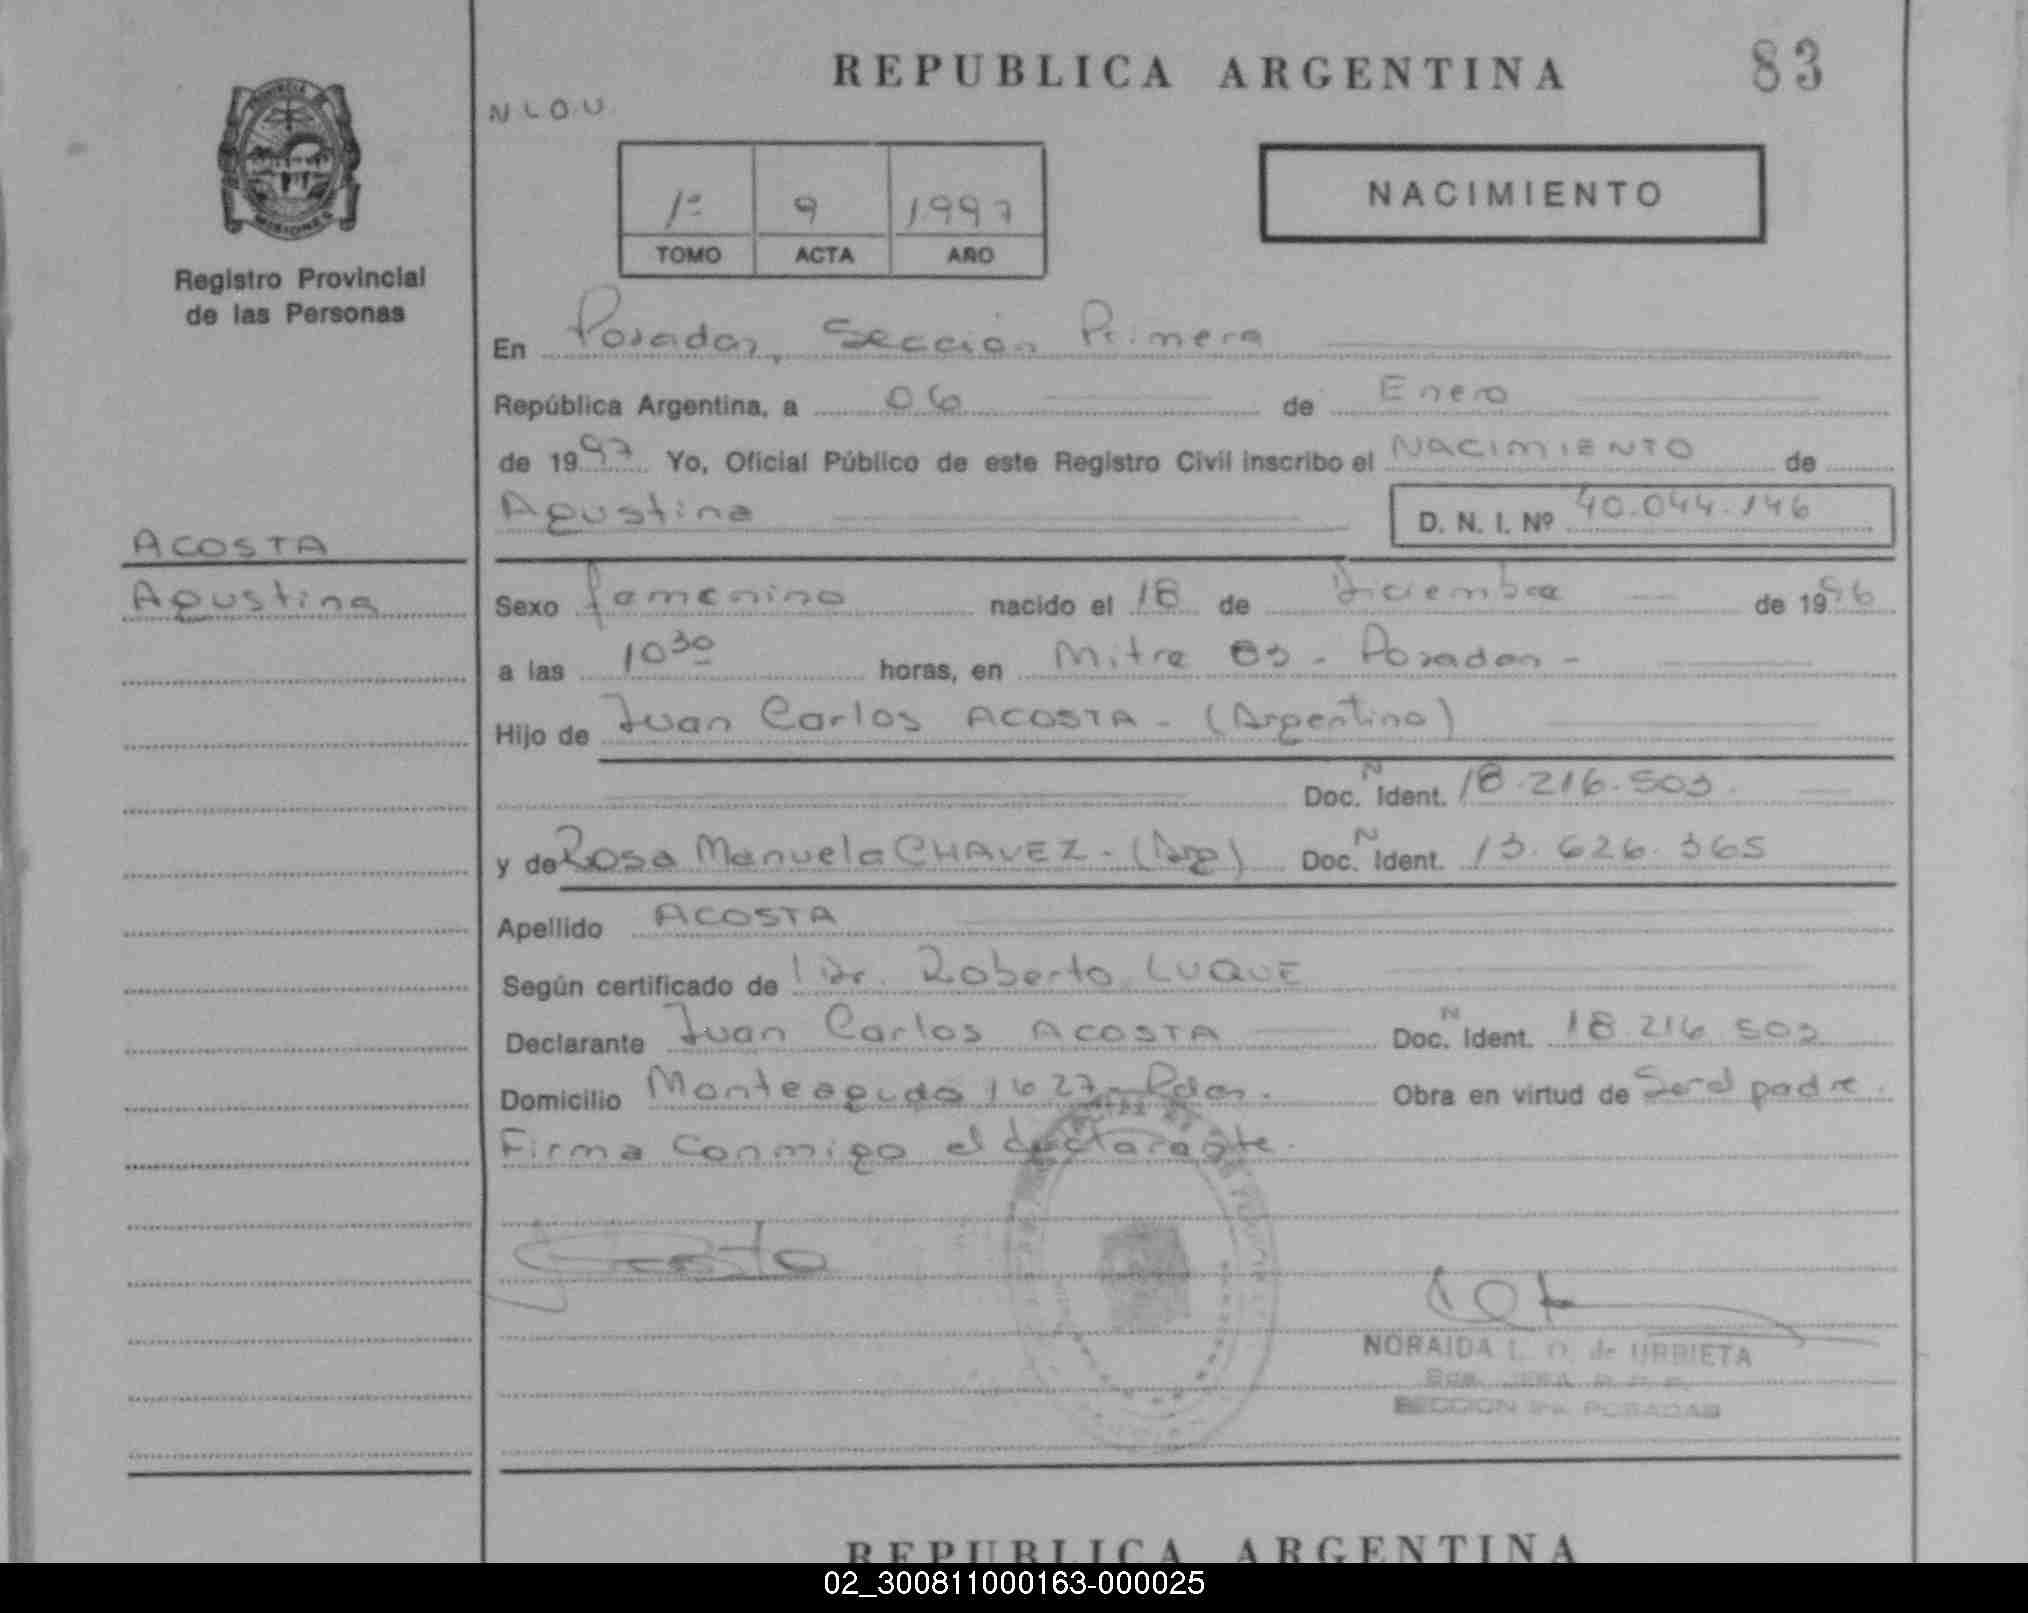 REPUBLICA ARGENTINA
83
N L O U
PROVINCIA DE
MISIONES
Registro Provincial
de las Personas
1º 9 1997
TOMO ACTA AÑO
NACIMIENTO
En Posadas, Sección Primera
República Argentina, a 06 de Enero
de 1997 Yo, Oficial Público de este Registro Civil inscribo el NACIMIENTO de
Agustina
D. N. I. Nº 40.044.146
ACOSTA
Agustina
Sexo femenino nacido el 18 de Diciembre de 1996
a las 10 30 horas, en Mitre 83 - Posadas -
Hijo de Juan Carlos ACOSTA - (Argentino)
Doc. N Ident. 18.216.503
y de Rosa Manuela CHAVEZ - (Arg) Doc. N Ident. 13.626.365
Apellido ACOSTA
Según certificado de Dr. Roberto LUQUE
Declarante Juan Carlos ACOSTA Doc. N Ident. 18.216.503
Domicilio Monteagudo 1627 - Pdas. Obra en virtud de Ser el padre.
Firma conmigo el declarante.
NORAIDA L. O. de URBIETA
SECCION 1ra. POSADAS
REPUBLICA ARGENTINA
02_300811000163-000025